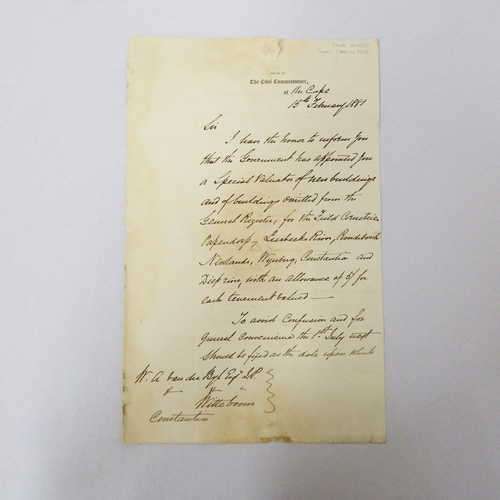 The Civil Commissioner,
of the Cape
15th February 1881
Sir
I have the honor to inform you
that the Government has appointed you
a Special Valuator of new buildings
and of buildings omitted from the
General Register, for the Field Cornetcies
Papendorp, Liesbeeks River, Rondebosch
Newlands, Wynberg, Constantia and
Diep river, with an allowance of 5/ for
each tenement valued —
To avoid Confusion and for
general convenience the 1st July next
should be fixed as the date upon which
W. A. van der Byl Esqr J.P.
Witteboomen
Constantia